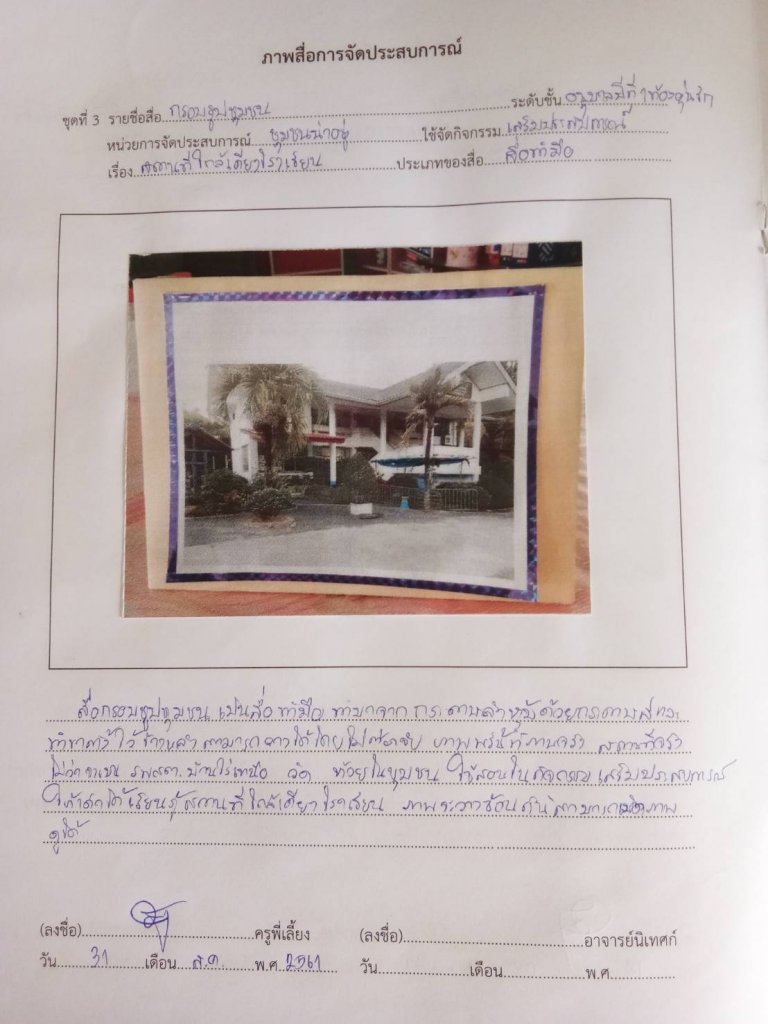 ภาพสื่อการจัดประสบการณ์
ชุดที่ 3 รายชื่อสื่อ กรอบรูปชุมชน ระดับชั้น อนุบาลปีที่ 1 ห้อง
หน่วยการจัดประสบการณ์ ชุมชนน่าอยู่ ใช้จัดกิจกรรม เสริมประสบการณ์
เรื่อง สถานที่ใกล้เคียงโรงเรียน ประเภทของสื่อ สื่อทำมือ
สื่อกรอบรูปชุมชน เป็นสื่อทำมือ ทำมาจาก กระดาษลังหุ้มด้วยกระดาษสี และ
ทำขาตั้งไว้ข้างหลัง สามารถวางได้โดยไม่ต้องจับ ภาพพริ้นท์ภาพจริง สถานที่จริง
ไม่ว่าจะเป็น รพสต. บ้านไร่เหนือ วัด ในชุมชน ใช้สอนในกิจกรรมเสริมประสบการณ์
ให้เด็กได้เรียนรู้สถานที่ใกล้เคียงโรงเรียน ภาพจะวางซ้อนกันสามารถ ภาพ
ดูได้
(ลงชื่อ) ครูพี่เลี้ยง (ลงชื่อ) อาจารย์นิเทศก์
วัน 31 เดือน ส.ค. พ.ศ 2561 วัน เดือน พ.ศ.